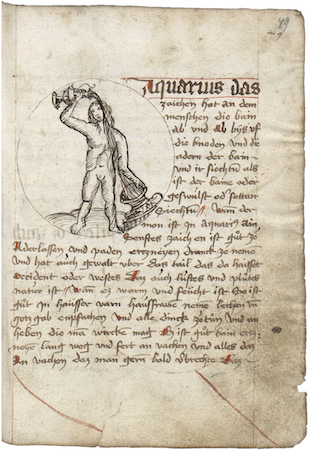 Aquarius das
zaichen hat an dem
menschen die bain
ab und ab bys uf
die knoden und die
adern der bain
und ir siechtu als
ist der baine oder
geswulst od
Siechtu Wan der
mon ist in Aquario an
zaichen ist gůt ze
Aderlassen und baden ertzneyen dranck ze neme
und hat auch gewalt uber das tail das da haisset
occident oder westes Im auch luftes und plůtes
natur ist Wan es warm und feücht ist So ist
gůt in haisser varn hausfrawe neme lechen un
gotzgab enpfachen und alle dinck zetün und an
heben die ma wircke mag Es ist gůt bäm
lang weg und fert an vachen und alles das
an vachen das man gern bald